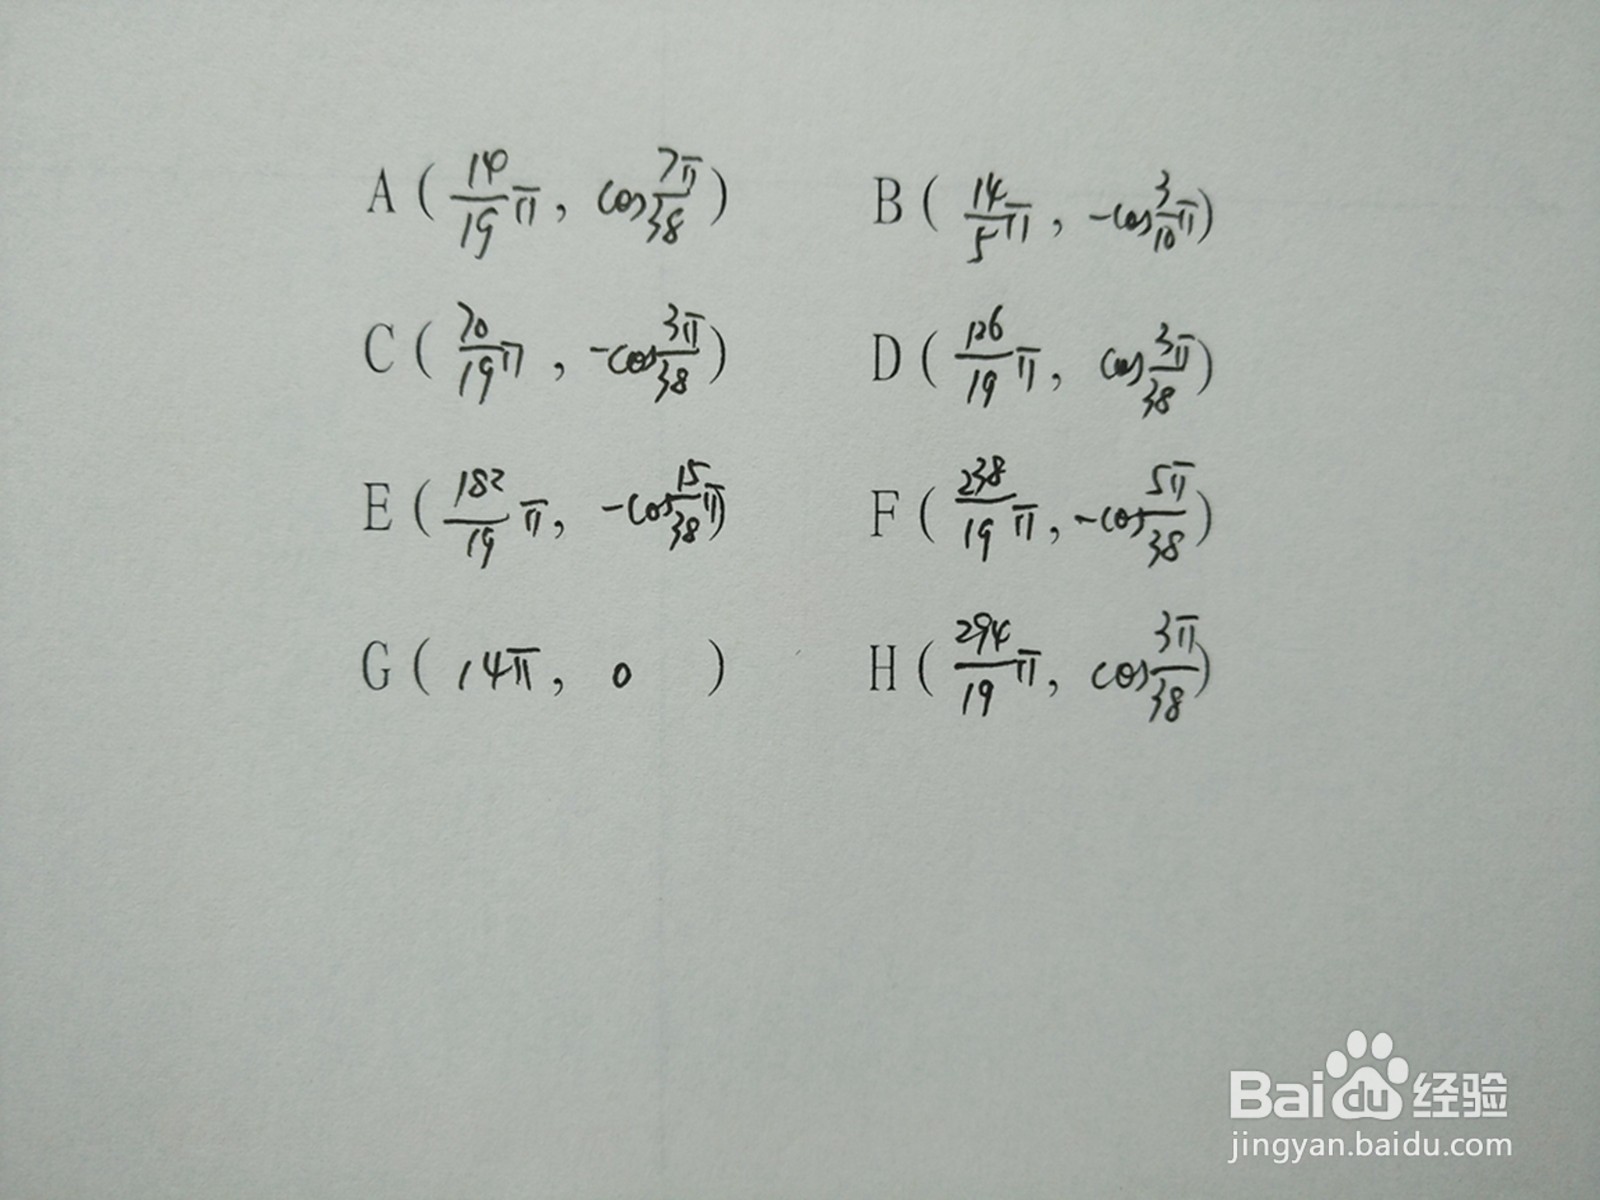 A ( 14/19 π, cos 7π/38 ) B ( 14/5 π, -cos 3/10 π )
C ( 70/19 π, -cos 3π/38 ) D ( 126/19 π, cos 3π/38 )
E ( 182/19 π, -cos 15/38 π ) F ( 238/19 π, -cos 5π/38 )
G ( 14π, 0 ) H ( 294/19 π, cos 3π/38 )
Baidu 经验
jingyan.baidu.com